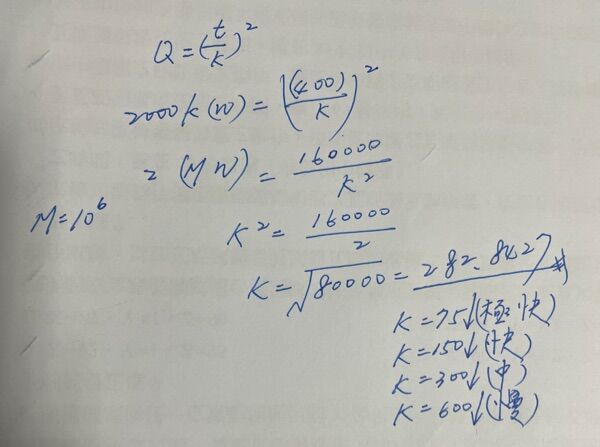 Q = (t/K)²
2000k(W) = ((400)/K)²
2 (MW) = 160000/K²
M=10⁶
K² = 160000/2
K = √80000 = 282.8427
K=75↓(極快)
K=150↓(快)
K=300↓(中)
K=600↓(慢)